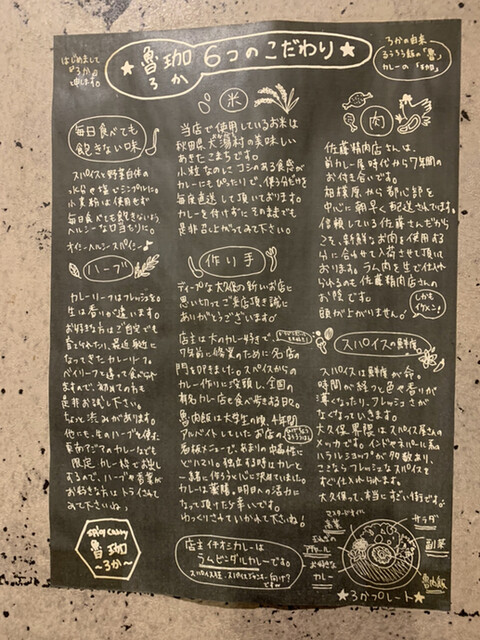 はじめまして
「ろか」と
申します。
★魯珈 6つのこだわり★
ろか
ろかの由来
るうろう飯の「魯」
カレーの「珈」
毎日食べても
飽きない味
スパイスと野菜自体の
水分や塩でシンプルに。
小麦粉は使用せず
毎日食べても飽きないよう
ヘルシーな口当りに。
オイシーヘルシースパイシー♪
ハーブ
カレーリーフはフレッシュを。
生は香りが違います。
お好きな方はご自宅でも
育てられたり、最近身近に
なってきたカレーリーフ。
ベイリーフと違って食べられ
ますので、初めての方も
是非お試し下さい。
ちょっと渋みがあります。
他にも、生のハーブを使った
東南アジアのカレーなども
限定カレー枠でお出し
するので、ハーブの香草が
お好きな方はトライされて
みて下さいね。
spicy curry
魯珈
~ろか~
米
当店で使用しているお米は
秋田県大潟村の美味しい
あきたこまちです。
小粒なのにコシのある食感が
カレーにもぴったりで、使う分だけを
毎度直送して頂いております。
カレーを付けずにそのままでも
是非召し上がってみて下さい。
作り手
ディープな大久保の新しいお店に
思い切ってご来店頂き誠に
ありがとうございます。
店主は大のカレー好きで、
7年前に修業のために名店の
門をOPENました。スパイスからの
カレー作りに没頭し、全国の
有名カレー店を食べ歩きる日々。
魯肉飯は大学生の頃、4年間
アルバイトしていたお店の
看板メニューで、あまりの中毒性に
ビックリ。独立する時はカレーと
一緒に作ろうと心に決めていました。
カレーは薬膳。明日への活力に
なって頂けたら幸いです。
ゆっくりされていかれて下さいね。
店主イチオシカレーは
ラムビンダルカレーです。
肉
佐藤精肉店さんは、
前カレー屋時代から7年間の
お付き合いです。
相模原から都心部を
中心に朝早く配送されています。
信頼している佐藤さんだから
こそ、新鮮なお肉を使用する
分に合わせて入荷させて頂いて
おります。ラム肉も生で仕入れ
られるのも佐藤精肉店さんの
お陰です。
頭が上がりません。
しかも
イケメン!
スパイスの鮮度
スパイスは鮮度が命。
時間が経つと色や香りが
薄くなったり、フレッシュさが
なくなっていきます。
大久保界隈はスパイス屋さんの
メッカです。インドやネパール系の
ハラルショップが多数あり、
いつもフレッシュなスパイスを
すぐ仕入れられます。
大久保って、本当にすごい街です。
マスタードオイル
高菜
サラダ
副菜
お好きな
カレー
魯肉飯
★ろかプレート★